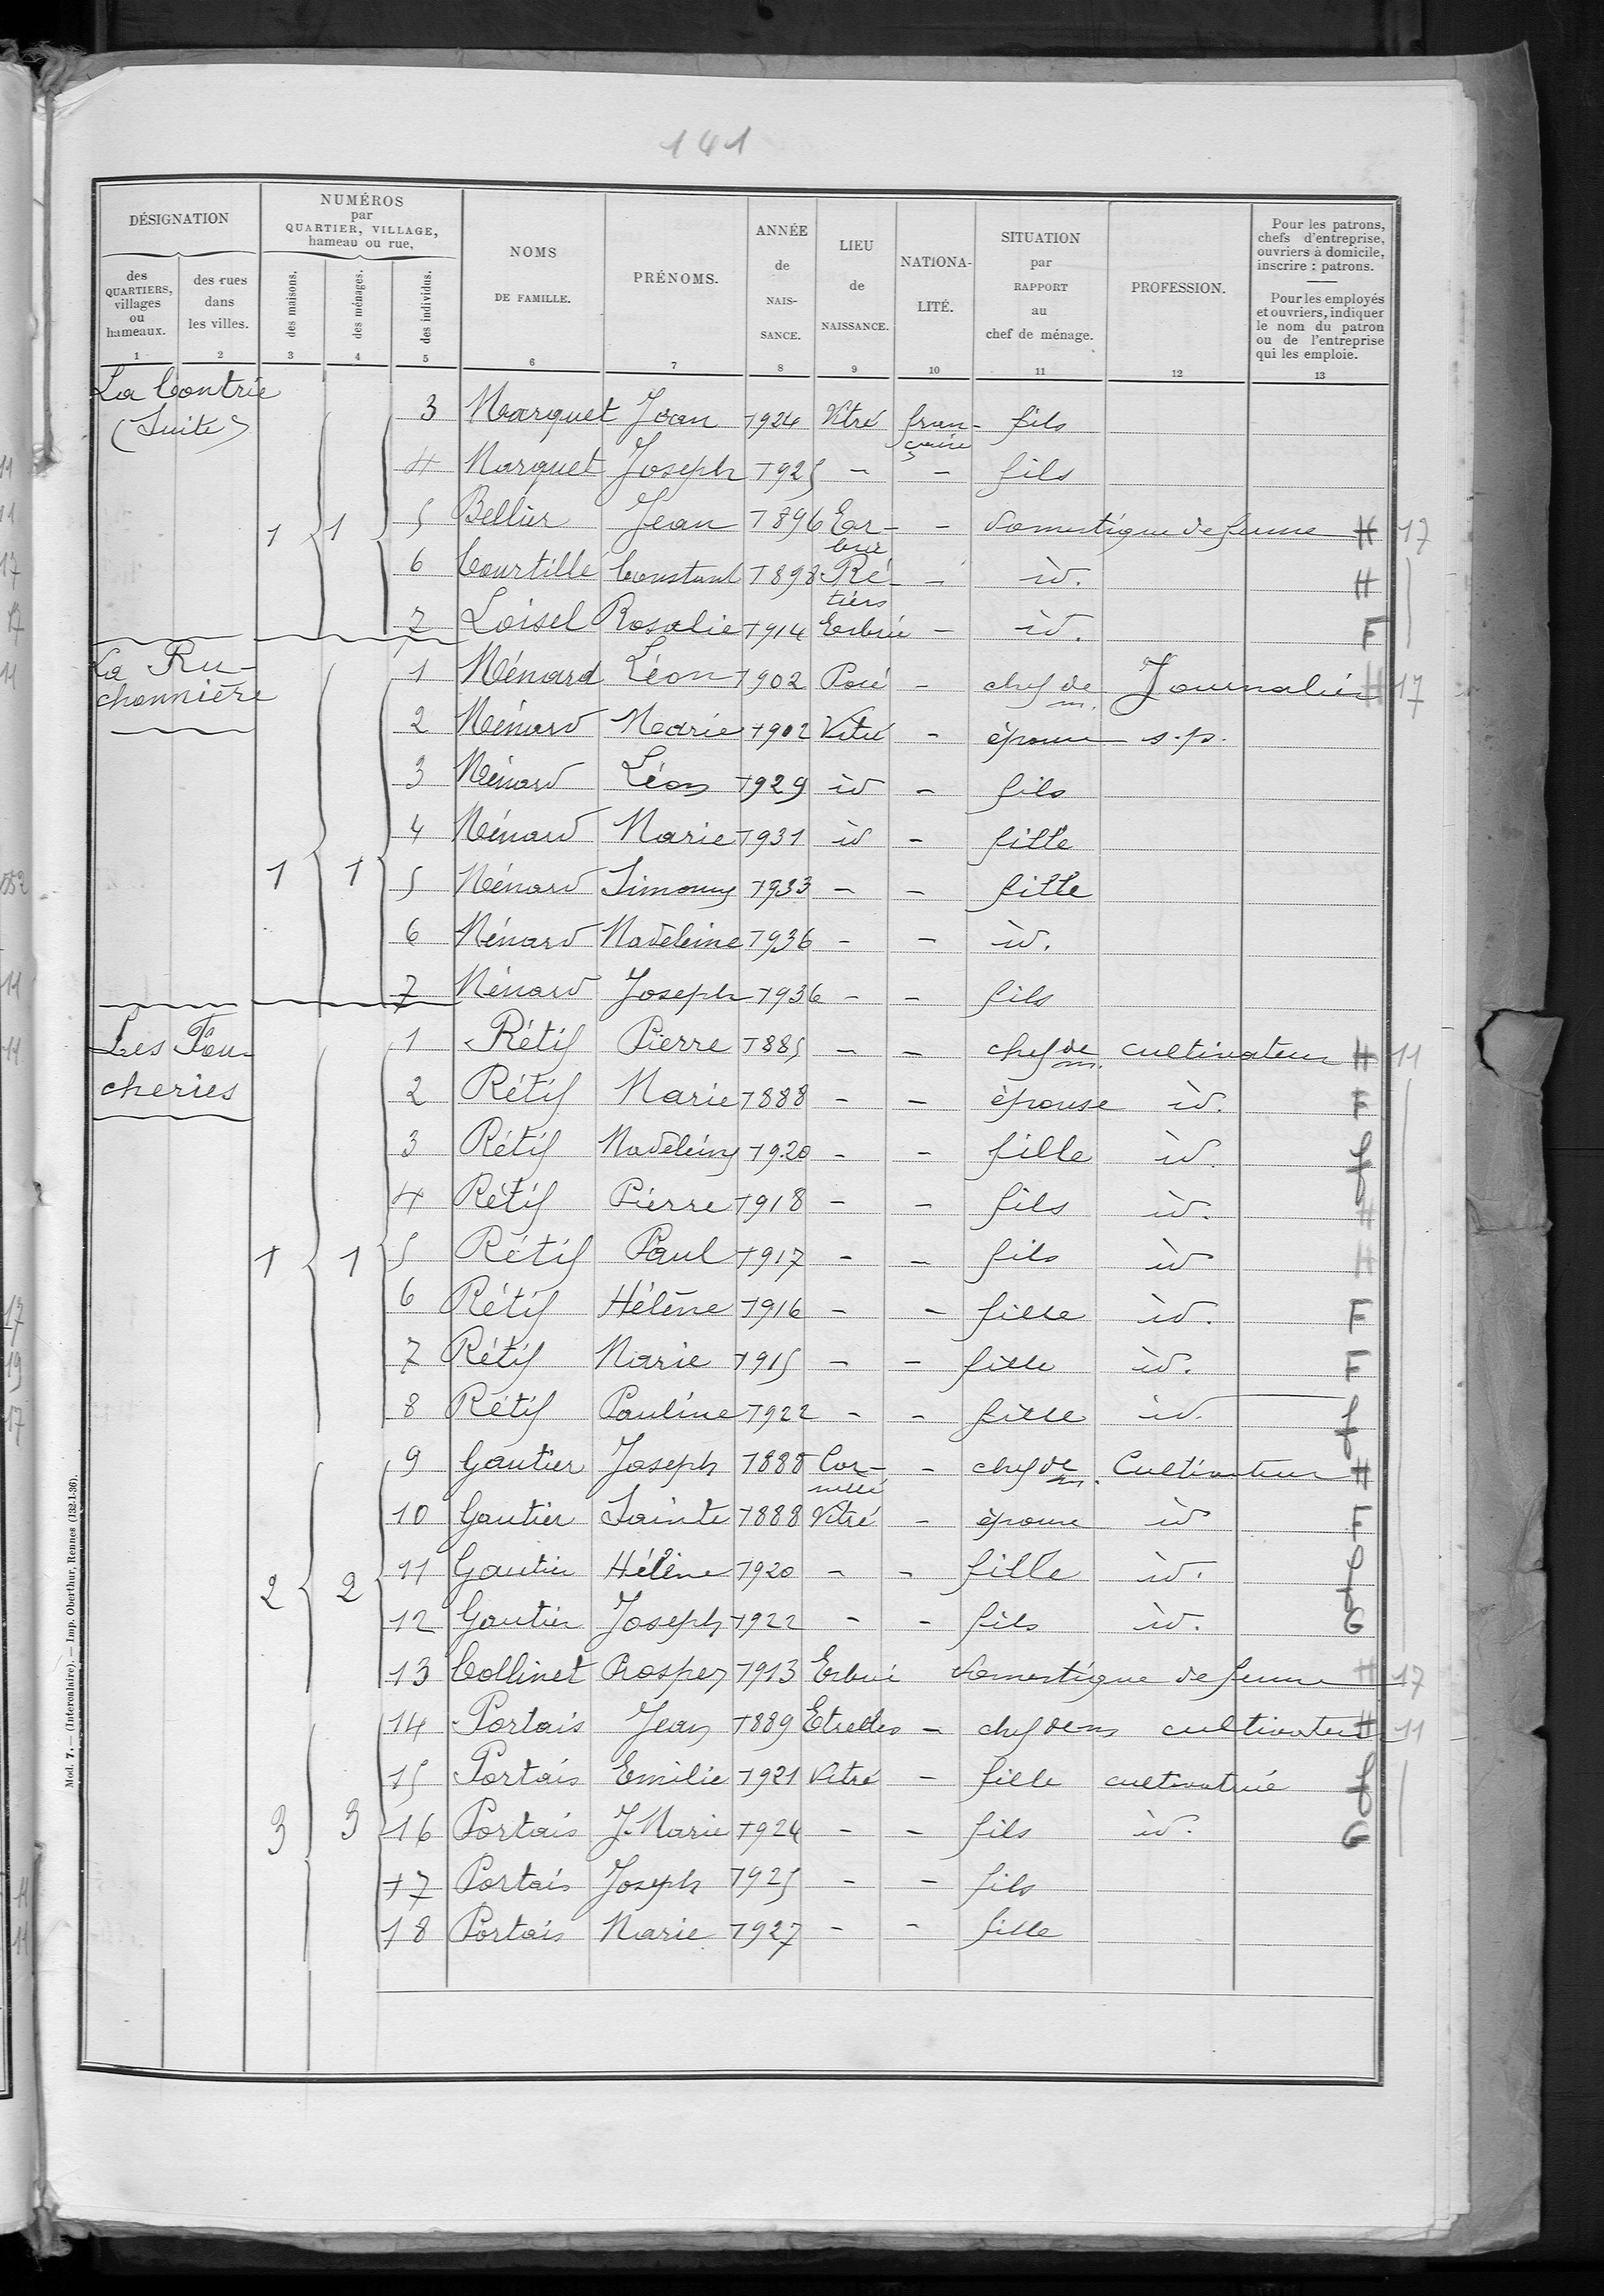 141
DÉSIGNATION
NUMÉROS
par
QUARTIER, VILLAGE,
hameau ou rue,
NOMS
DE FAMILLE.
PRÉNOMS.
ANNÉE
de
NAIS-
SANCE.
LIEU
de
NAISSANCE.
NATIONA-
LITÉ.
SITUATION
par
RAPPORT
au
chef de ménage.
PROFESSION.
Pour les patrons,
chefs d'entreprise,
ouvriers à domicile,
inscrire : patrons.
Pour les employés
et ouvriers, indiquer
le nom du patron
ou de l'entreprise
qui les emploie.
des
QUARTIERS,
villages
ou
hameaux.
des rues
dans
les villes.
des maisons.
des ménages.
des individus.
1 2 3 4 5 6 7 8 9 10 11 12 13
La Contrie
(Suite)
3 Marquet Jean 1924 Vitré fran-
çaise fils
4 Marquet Joseph 1925 - - fils
1 1 5 Bellier Jean 1896 Er-
brée - domestique de ferme H 17
6 Courtille Constant 1898 Ré-
tiers - id. H
7 Loisel Rosalie 1914 Erbrée - id. F
La Ru-
chonnière
1 Ménard Léon 1902 Pocé - chef de
m. Journalier H 17
2 Ménard Marie 1902 Vitré - épouse s.p.
3 Ménard Léon 1929 id - fils
4 Ménard Marie 1931 id - fille
1 1 5 Ménard Simonne 1933 - - fille
6 Ménard Madeleine 1936 - - id.
7 Ménard Joseph 1936 - - fils
Les Fou-
cheries
1 Rétif Pierre 1885 - - chef de
m. cultivateur H 11
2 Rétif Marie 1888 - - épouse id. F
3 Rétif Madeleine 1920 - - fille id. f
4 Rétif Pierre 1918 - - fils id. H
1 1 5 Rétif Paul 1917 - - fils id H
6 Rétif Hélène 1916 - - fille id. F
7 Rétif Marie 1915 - - fille id. F
8 Rétif Pauline 1922 - - fille id. f
9 Gautier Joseph 1888 Cor-
nillé - chef de
m. Cultivateur H
10 Gautier Sainte 1888 Vitré - épouse id F
2 2 11 Gautier Hélène 1920 - - fille id. f
12 Gautier Joseph 1922 - - fils id. G
13 Collinet Prosper 1913 Erbrée domestique de ferme H 17
14 Portais Jean 1889 Etrelles - chef de m cultivateur H 11
15 Portais Emilie 1921 Vitré - fille cultivatrice f
3 3 16 Portais J. Marie 1924 - - fils id. G
17 Portais Joseph 1925 - - fils
18 Portais Marie 1927 - - fille
Mod. 7. — (Intercalaire). — Imp. Oberthur, Rennes (132-1-36).